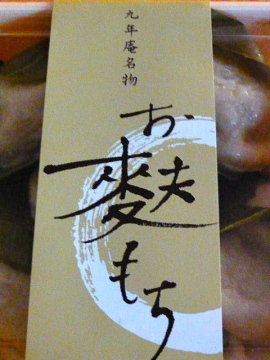 九年庵名物
お麩もち